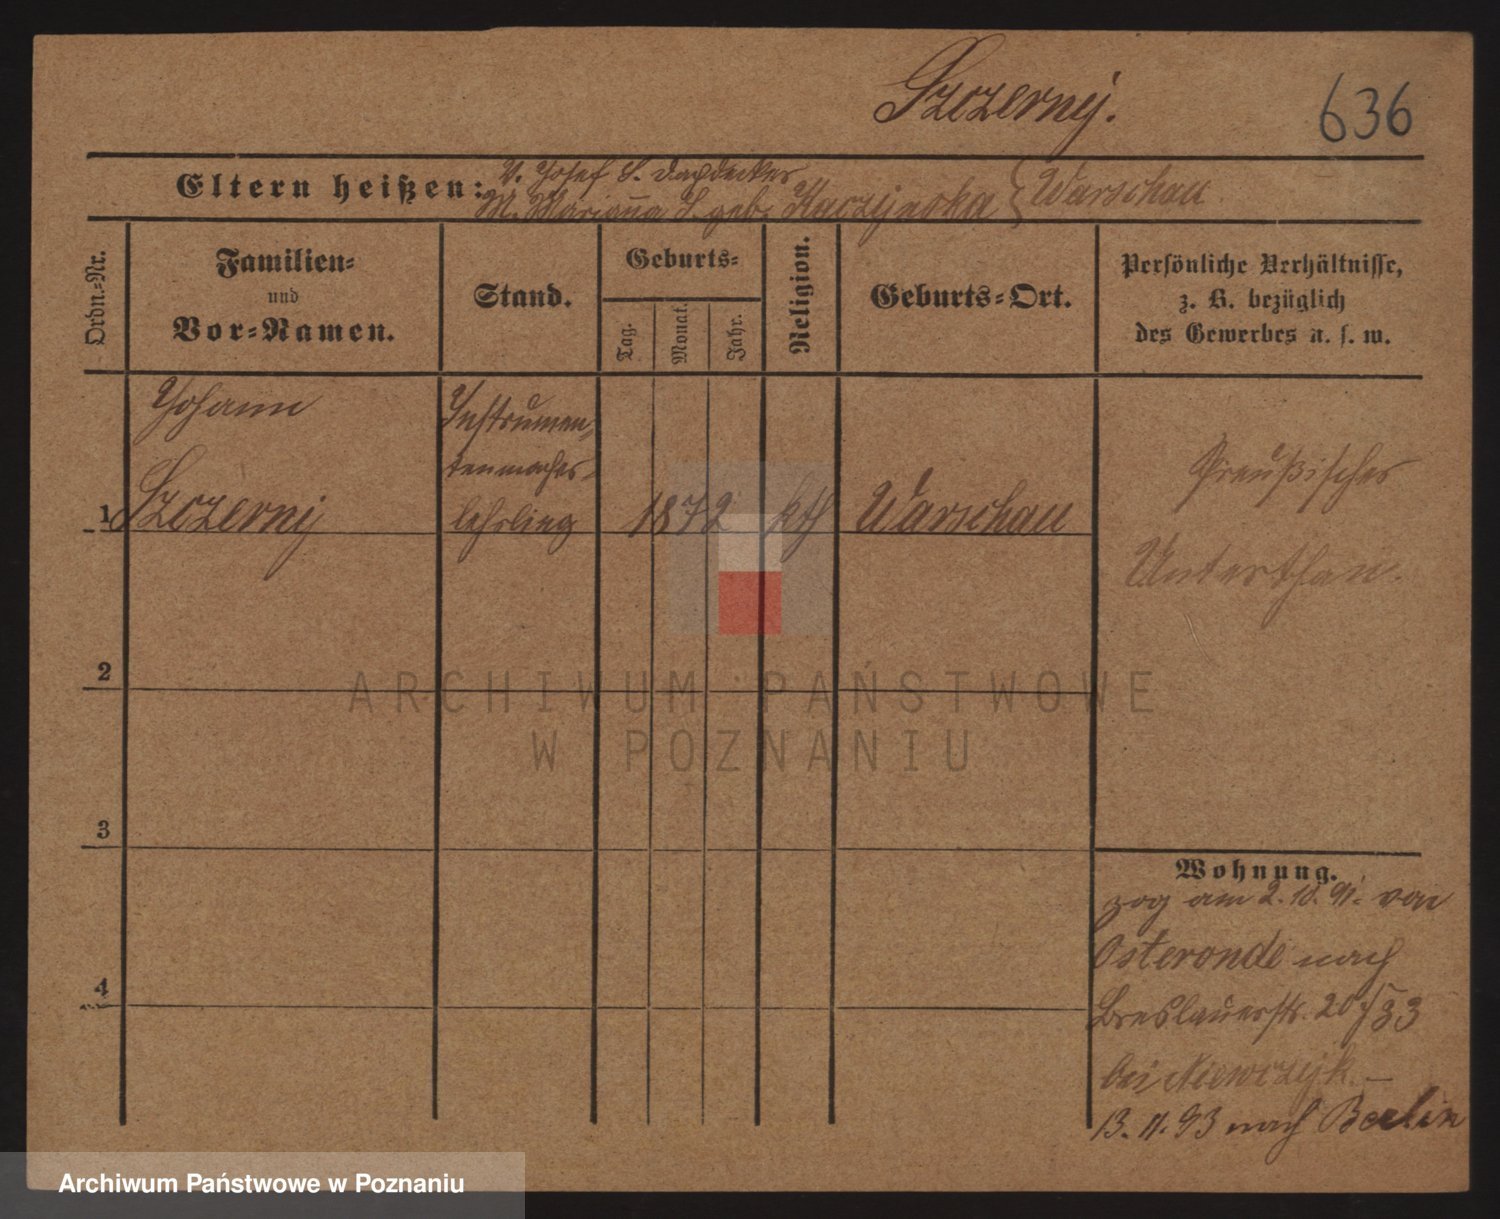 Szczerny.
636
Eltern heißen:
V. Josef S. Dachdecker
M. Marianna S. geb. Kaczynska } Warschau
Ordn.-Nr.
Familien-
und
Vor-Namen.
Stand.
Geburts-
Tag.
Monat.
Jahr.
Religion.
Geburts-Ort.
Persönliche Verhältnisse,
z. B. bezüglich
des Gewerbes u. s. w.
Johann
Szczerny
Instrumen-
tenmacher-
lehrling
1 1872 kth Warschau
Preußischer
Unterthan.
2
3
4
Wohnung.
zog am 2.10.91. von
Osterode nach
Breslauerstr. 20
bei
13.11.93 nach Berlin
ARCHIWUM PAŃSTWOWE
W POZNANIU
Archiwum Państwowe w Poznaniu